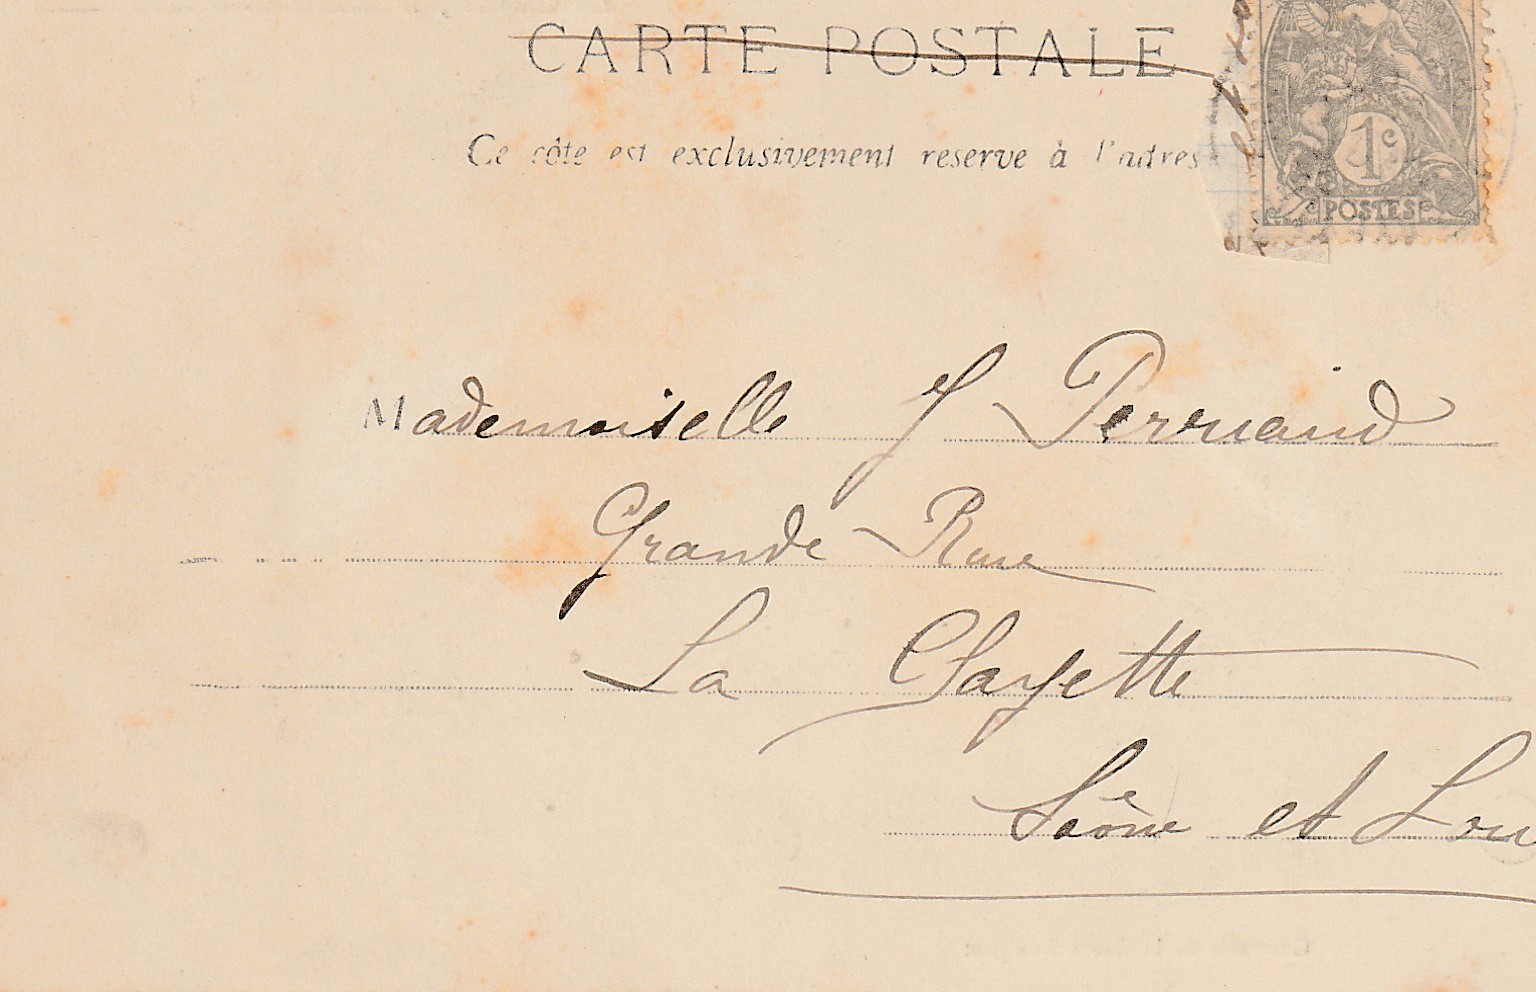 CARTE POSTALE
Ce côte est exclusivement reserve à l'adres
1c
POSTES
Mademoiselle J Perruaud
Grande Rue
La Clayette
Saône et Loir